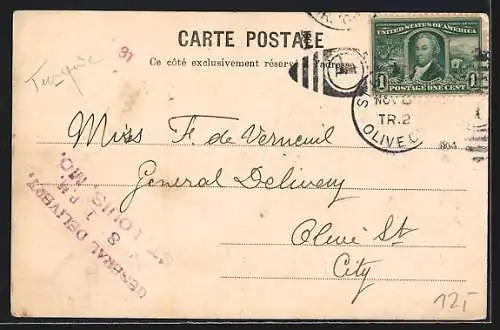 CARTE POSTALE
Ce côté exclusivement réservé l'adresse
91
Turquie
UNITED STATES OF AMERICA
1 POSTAGE ONE CENT 1
NOV
TR.2
OLIVE
Miss F. de Verneuil
General Delivery
Olive St.
City
GENERAL DELIVERY.
1 P M
8
ST LOUIS, MO.
12,-